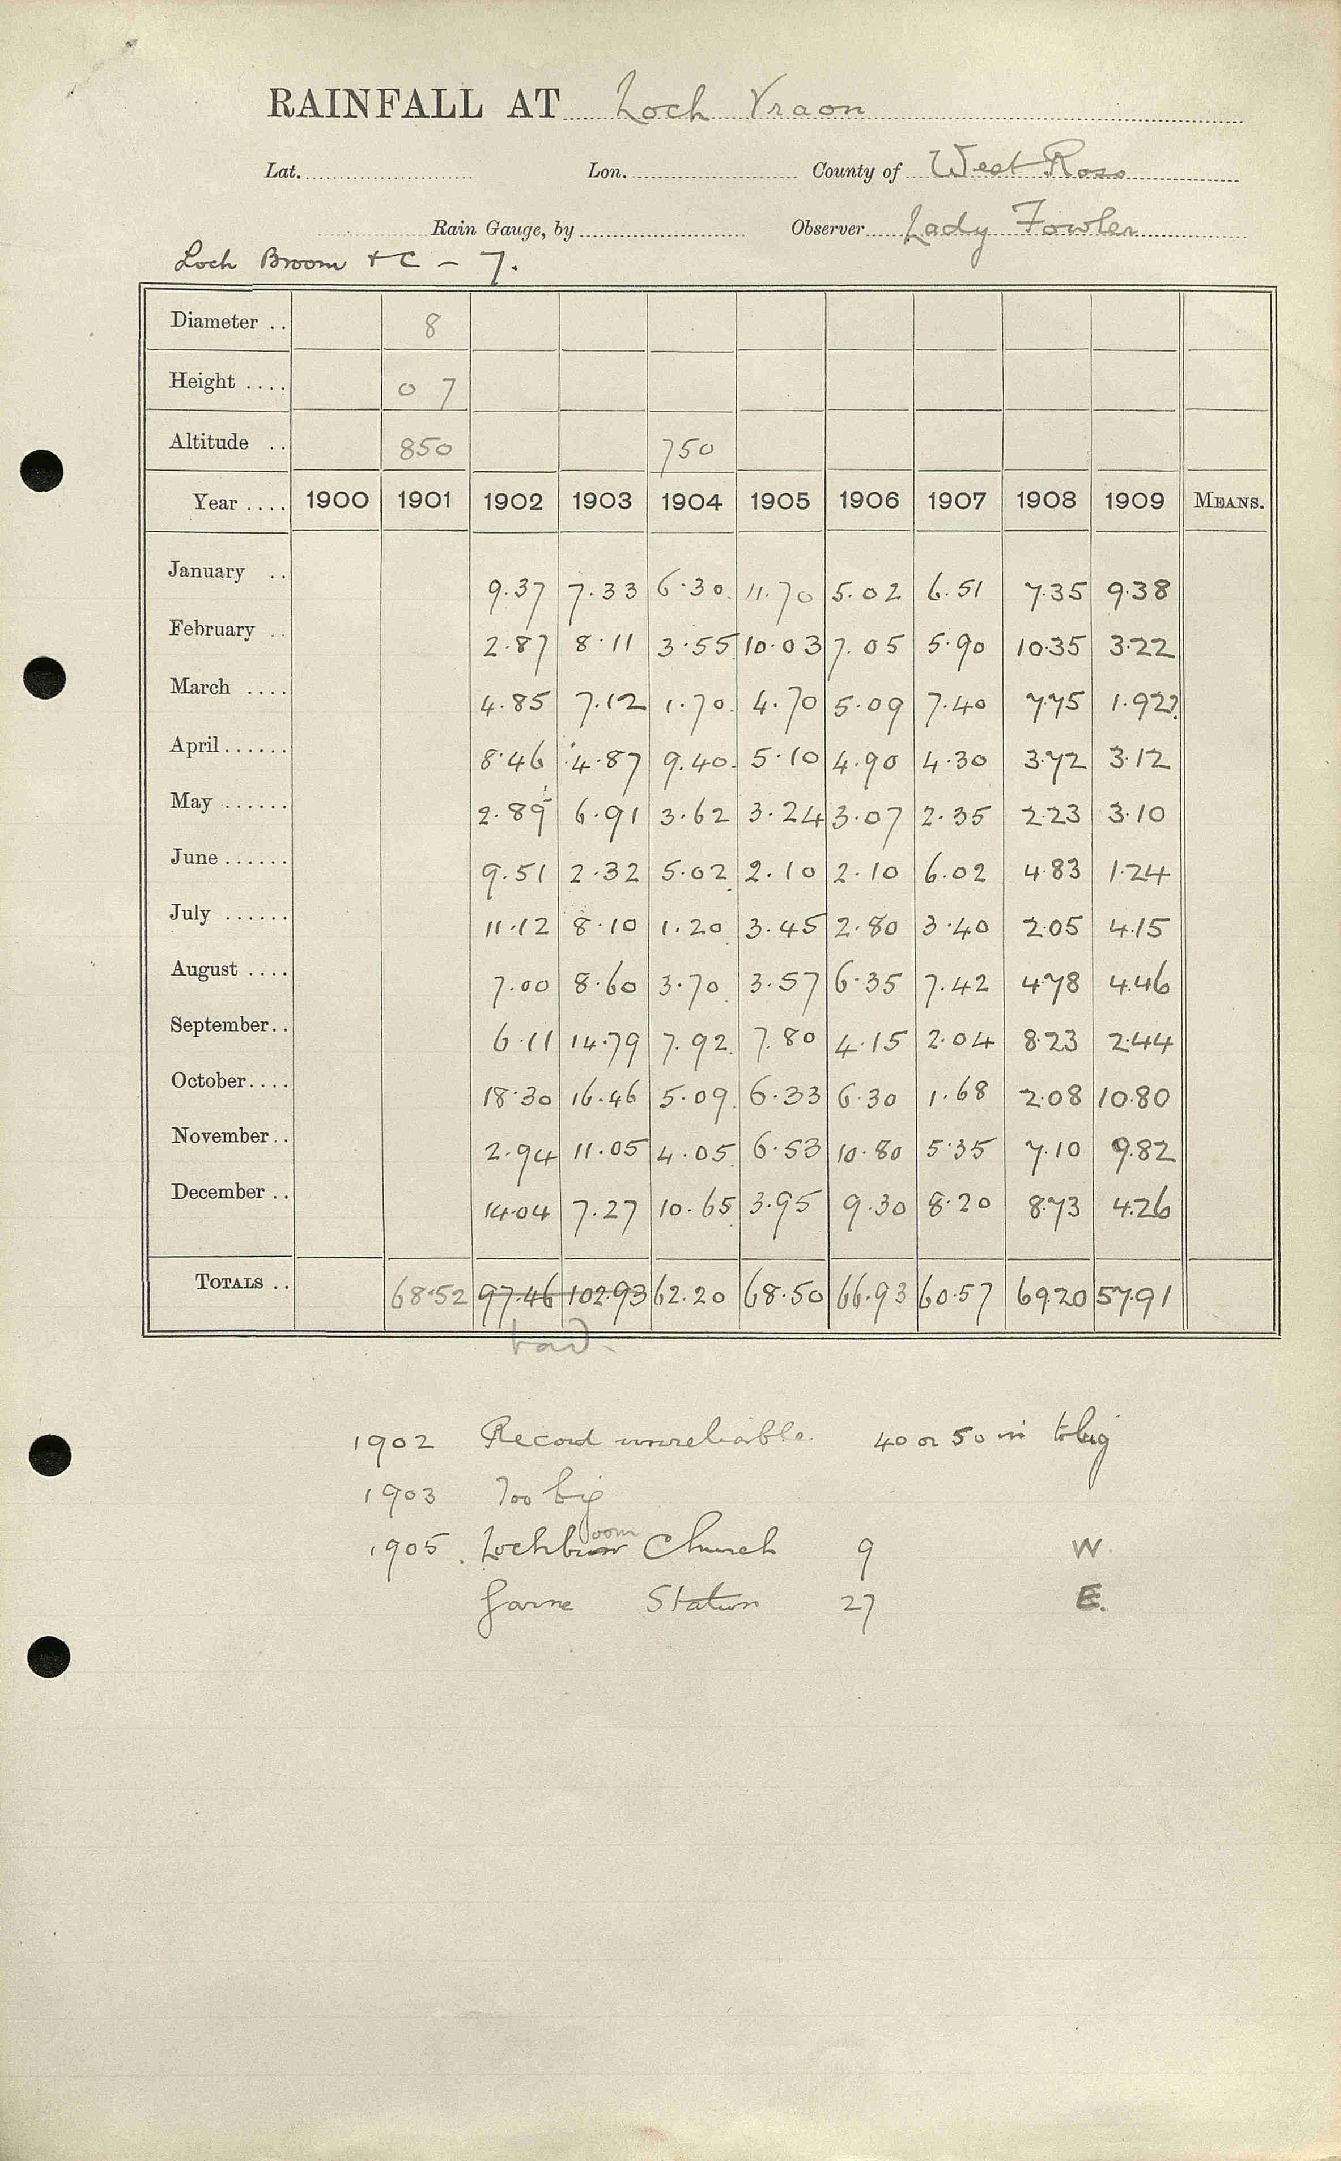 RAINFALL AT Loch Vraon
Lat. Lon. County of West Ross
Rain Gauge, by Observer Lady Fowler
Loch Broom + C - 7.
Diameter .. 8
Height .... 0 7
Altitude .. 850 750
Year .... 1900 1901 1902 1903 1904 1905 1906 1907 1908 1909 MEANS.
January .. 9.37 7.33 6.30 11.70 5.02 6.51 7.35 9.38
February .. 2.87 8.11 3.55 10.03 7.05 5.90 10.35 3.22
March .... 4.85 7.12 1.70 4.70 5.09 7.40 7.75 1.92?
April ...... 8.46 4.87 9.40 5.10 4.90 4.30 3.72 3.12
May ...... 2.89 6.91 3.62 3.24 3.07 2.35 2.23 3.10
June ...... 9.51 2.32 5.02 2.10 2.10 6.02 4.83 1.24
July ...... 11.12 8.10 1.20 3.45 2.80 3.40 2.05 4.15
August .... 7.00 8.60 3.70 3.57 6.35 7.42 4.78 4.46
September.. 6.11 14.79 7.92 7.80 4.15 2.04 8.23 2.44
October.... 18.30 16.46 5.09 6.33 6.30 1.68 2.08 10.80
November.. 2.94 11.05 4.05 6.53 10.80 5.35 7.10 9.82
December .. 14.04 7.27 10.65 3.95 9.30 8.20 8.73 4.26
TOTALS .. 68.52 97.46 102.93 62.20 68.50 66.93 60.57 69.20 57.91
bad.
1902 Record unreliable. 40 or 50 in too big
1903 Too big
1905. Lochbroom Church 9 W.
Garve Station 27 E.